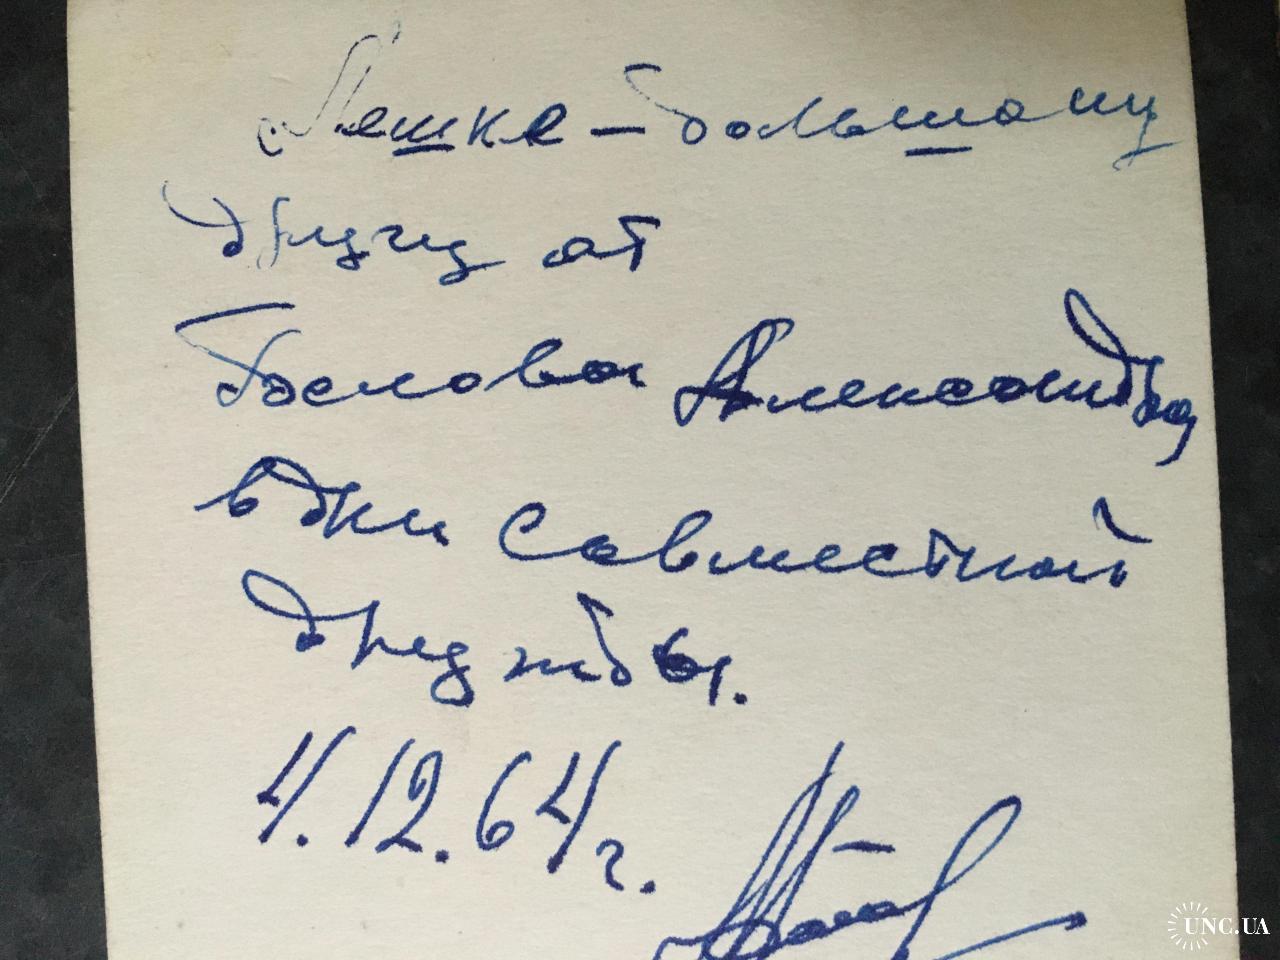 Лешке - большому
другу от
Маслова Александра
в дни совместной
дружбы.
4.12.64 г.
UNC.UA